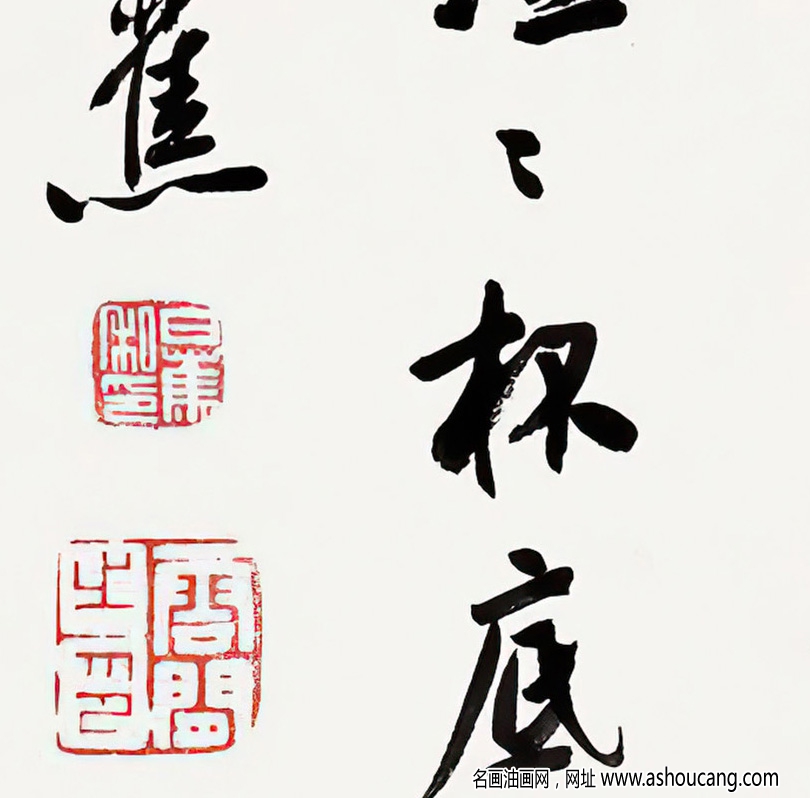 杯底
蕉
白蕉私印
名画油画网，网址 www.ashoucang.com